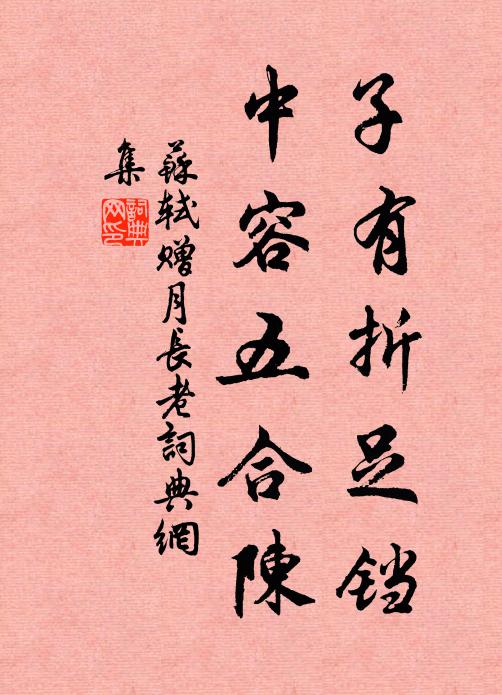 子有折足铛
中容五合陳
蘇軾赠月長老詞典網
集
詞典
网印